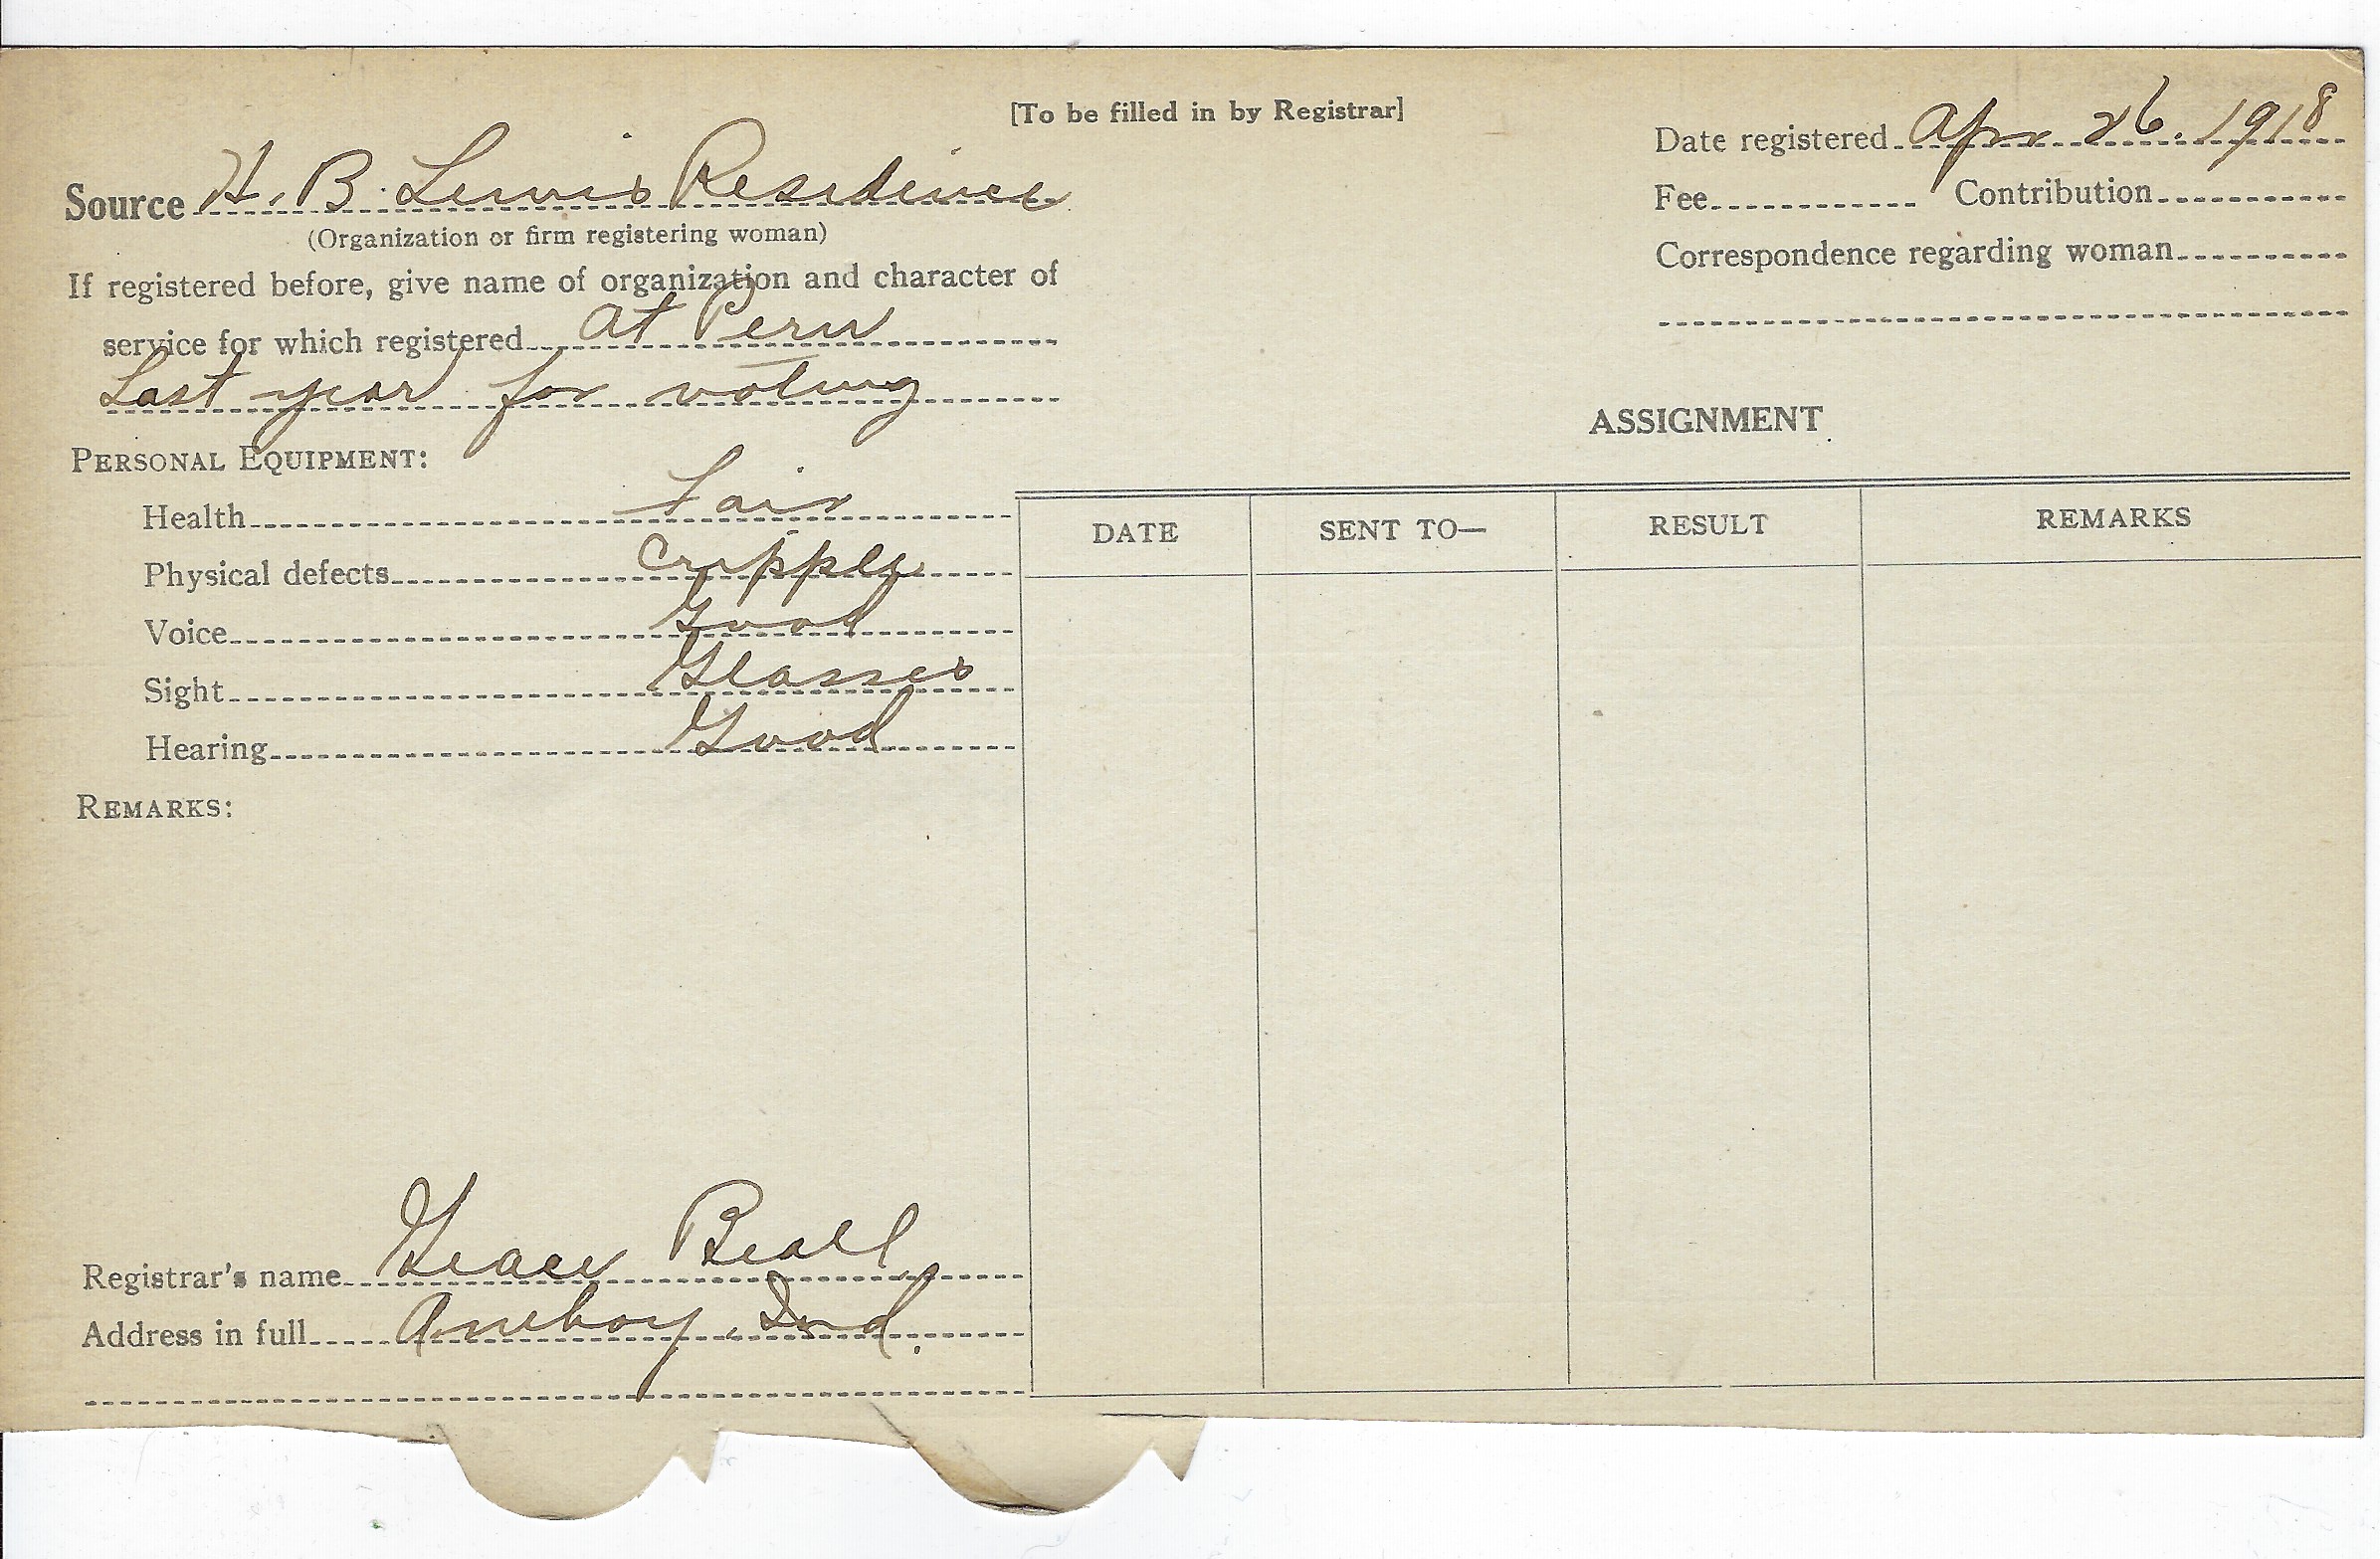 [To be filled in by Registrar]
Date registered Apr 26. 1918
Source H. B. Lewis Residence
Fee Contribution
(Organization or firm registering woman)
Correspondence regarding woman
If registered before, give name of organization and character of
service for which registered at Peru
Last year for voting
ASSIGNMENT
PERSONAL EQUIPMENT:
Health Fair
DATE SENT TO— RESULT REMARKS
Physical defects Cripple
Voice Good
Sight Glasses
Hearing Good
REMARKS:
Registrar's name Grace Beall
Address in full Amboy, Ind.